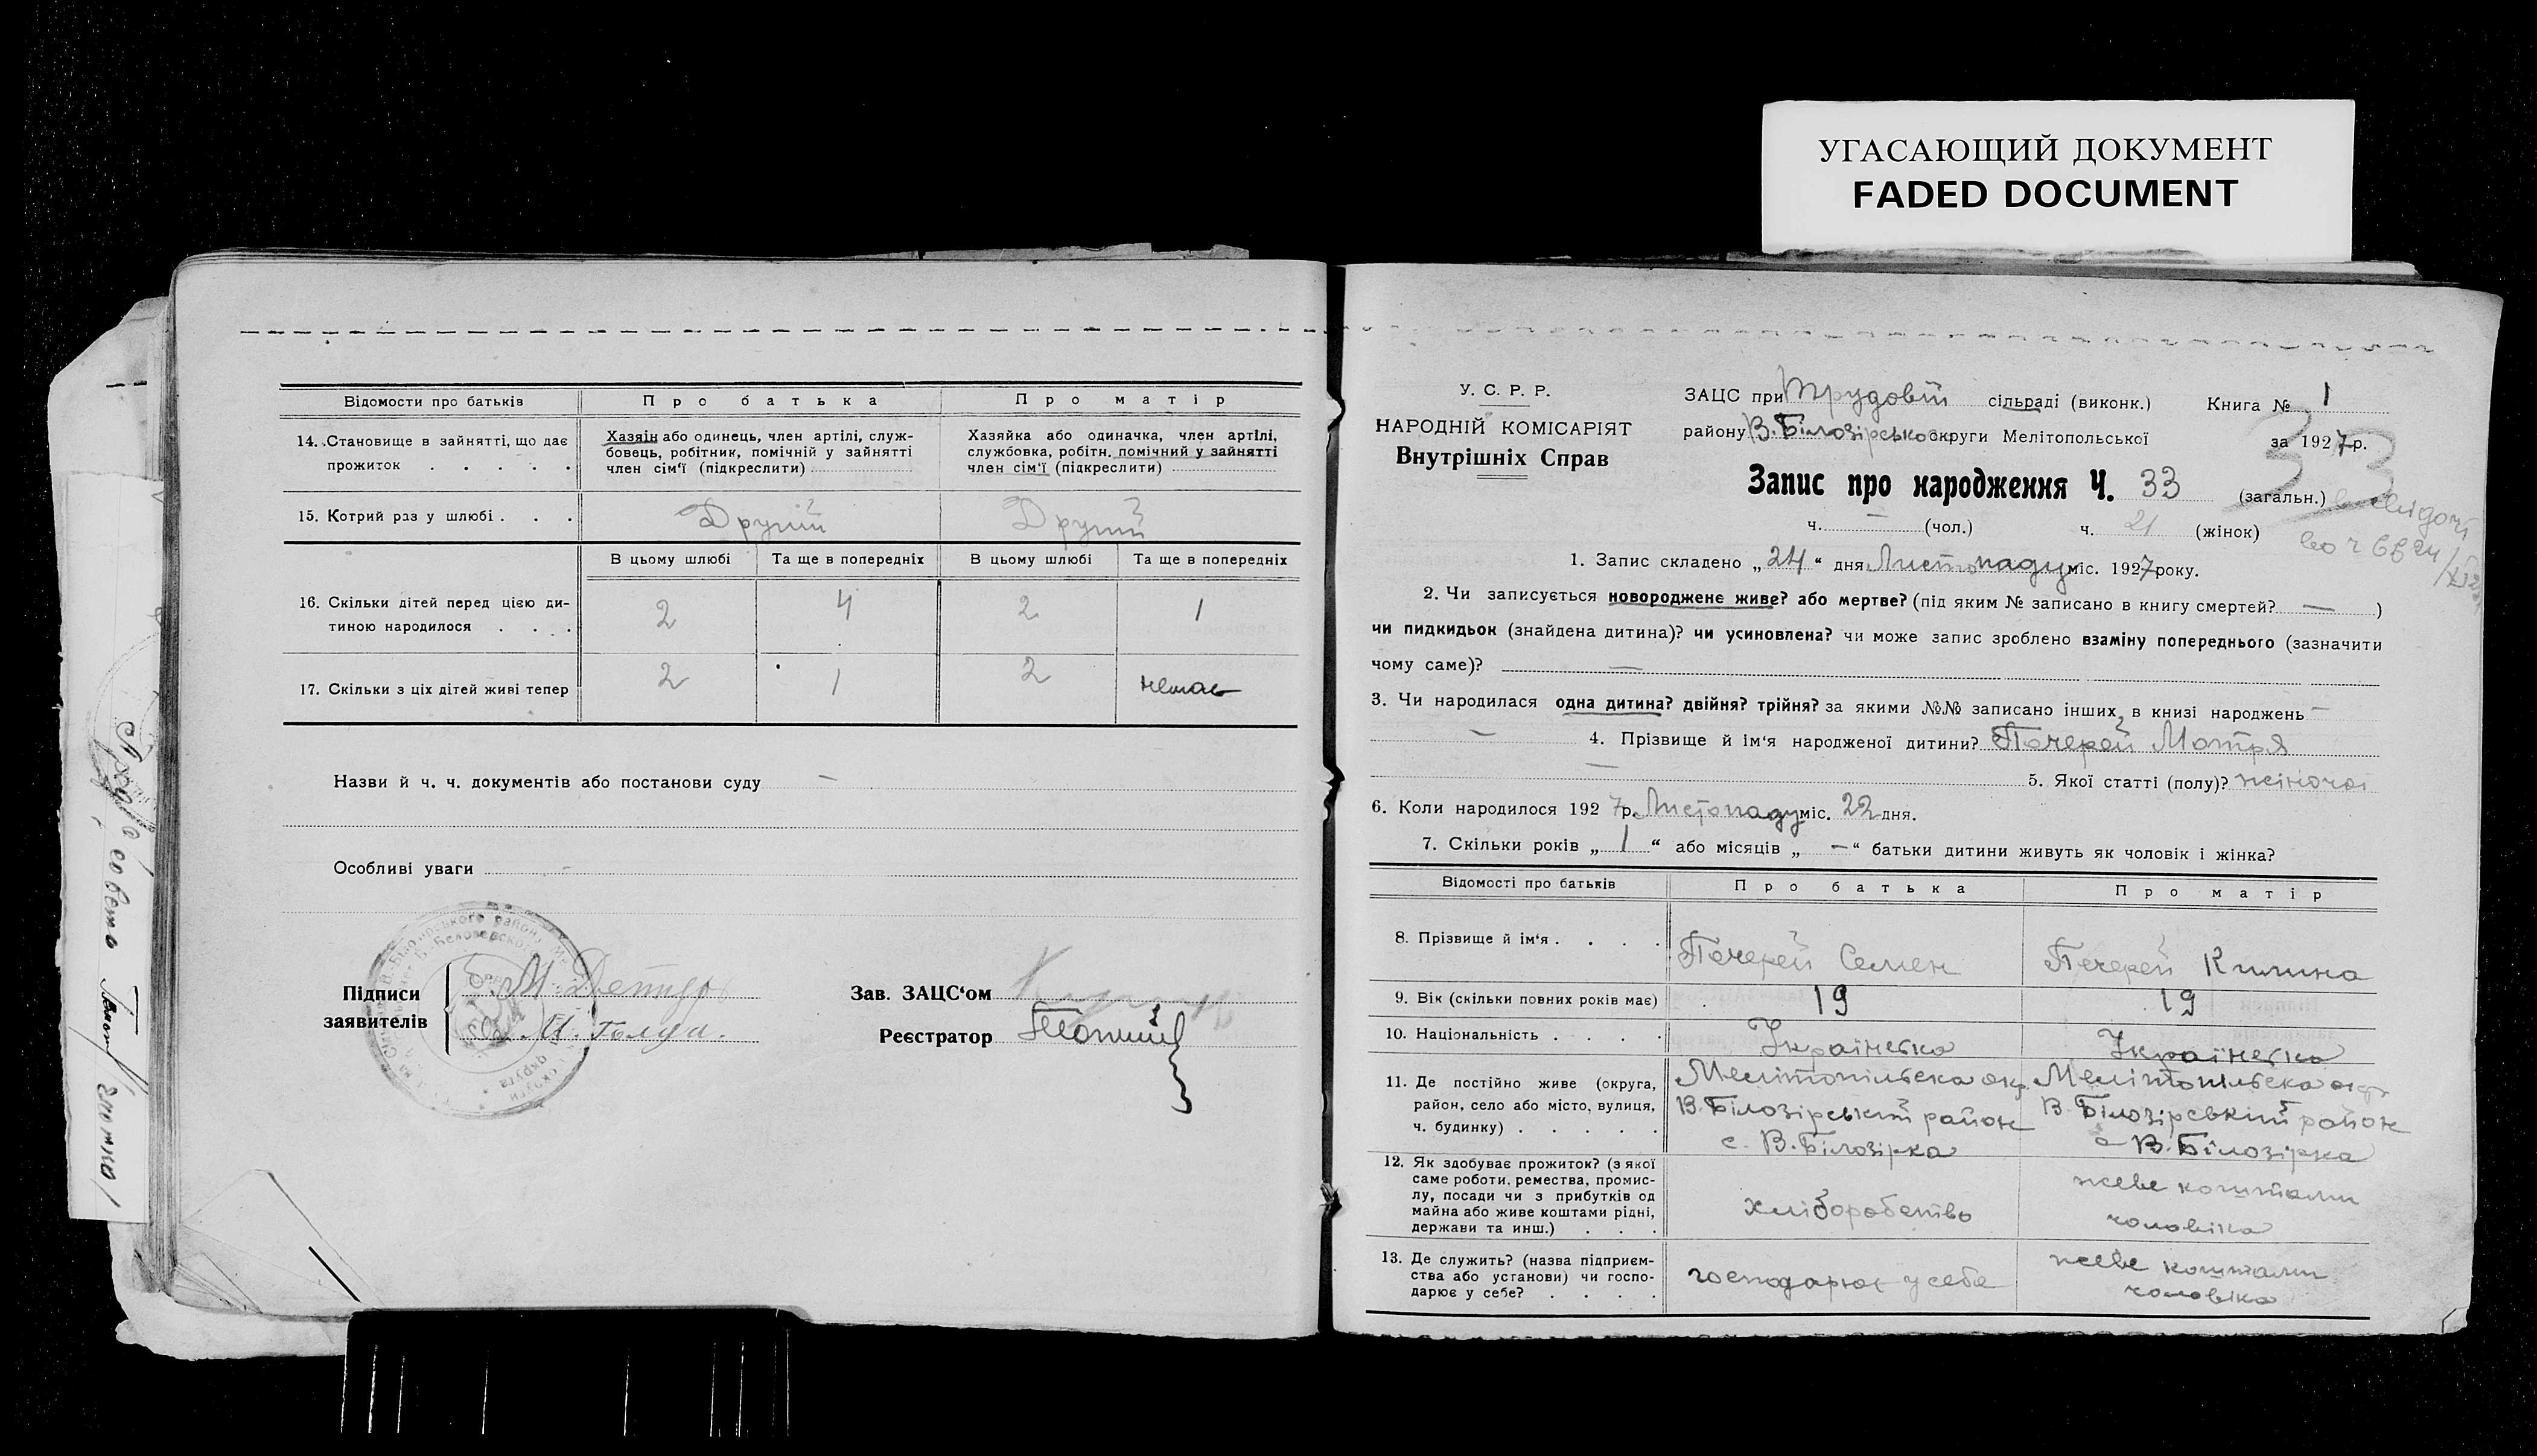 УГАСАЮЩИЙ ДОКУМЕНТ
FADED DOCUMENT
Відомости про батьків Про батька Про матір
14. Становище в зайнятті, що дає прожиток . . . . .
Хазяін або одинець, член артілі, служ-
бовець, робітник, помічній у зайнятті
член сім'ї (підкреслити)
Хазяйка або одиначка, член артілі,
службовка, робітн. помічний у зайнятті
член сім'ї (підкреслити)
15. Котрий раз у шлюбі . . . Другій Другій
В цьому шлюбі Та ще в попередніх В цьому шлюбі Та ще в попередніх
16. Скільки дітей перед цією ди-
тиною народилося . . . 2 4 2 1
17. Скільки з ціх дітей живі тепер 2 1 2 немає
Назви й ч. ч. документів або постанови суду —
Особливі уваги —
Підписи
заявителів
М. Голуа.
Зав. ЗАЦС'ом
Реєстратор
У. С. Р. Р.
НАРОДНІЙ КОМІСАРІЯТ
Внутрішніх Справ
ЗАЦС при Трудовій сільраді (виконк.) Книга № 1
району В. Білозірсько округи Мелітопольської за 1927 р.
33
Запис про народження Ч. 33 (загальн.)
ч. — (чол.) ч. 21 (жінок)
1. Запис складено „24“ дня Листопаду міс. 1927 року.
2. Чи записується новороджене живе? або мертве? (під яким № записано в книгу смертей? — )
чи пидкидьок (знайдена дитина)? чи усиновлена? чи може запис зроблено взаміну попереднього (зазначити
чому саме)? —
3. Чи народилася одна дитина? двійня? трійня? за якими №№ записано інших в книзі народжень —
— 4. Прізвище й ім'я народженої дитини? Печерей Мотря
— 5. Якої статті (полу)? жіночоі
6. Коли народилося 1927 р. Листопаду міс. 22 дня.
7. Скільки років „1“ або місяців „—“ батьки дитини живуть як чоловік і жінка?
Відомості про батьків Про батька Про матір
8. Прізвище й ім'я . . . . Печерей Семен Печерей Килина
9. Вік (скільки повних років має) 19 19
10. Національність . . . . Українська Українська
11. Де постійно живе (округа,
район, село або місто, вулиця,
ч. будинку) . . . . .
Мелітопільска окр.
В. Білозірський район
с. В. Білозірка
Мелітопільска окр.
В. Білозірський район
с В. Білозірка
12. Як здобуває прожиток? (з якої
саме роботи, ремества, промис-
лу, посади чи з прибутків од
майна або живе коштами рідні,
держави та инш.) . . .
хліборобство
жеве коштами
чоловіка
13. Де служить? (назва підприєм-
ства або установи) чи госпо-
дарює у себе? . . . .
господарює у себе
жеве коштами
чоловіка